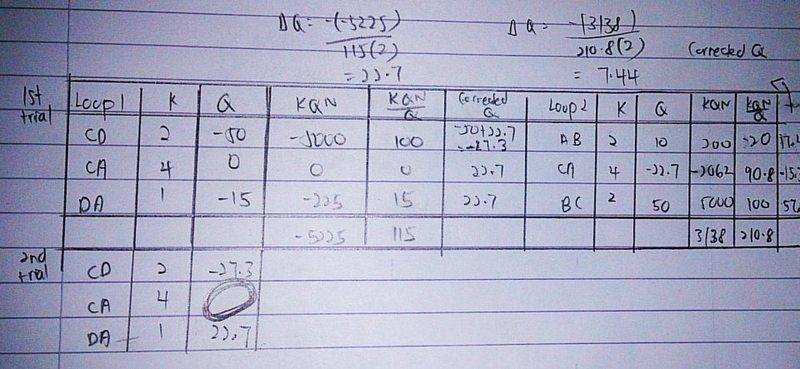 ΔQ = -(-5225) ΔQ = -(3138)
115(2) 210.8(2) Corrected Q
= 22.7 = 7.44
1st trial Loop1 K Q KQN KQN/Q Corrected Q Loop2 K Q KQN KQN/Q
CD 2 -50 -5000 100 -50+22.7 = -27.3 AB 2 10 200 20
CA 4 0 0 0 22.7 CA 4 -22.7 -2062 90.8
DA 1 -15 -225 15 22.7 BC 2 50 5000 100
-5225 115 3138 210.8
2nd trial CD 2 -27.3
CA 4
DA 1 22.7